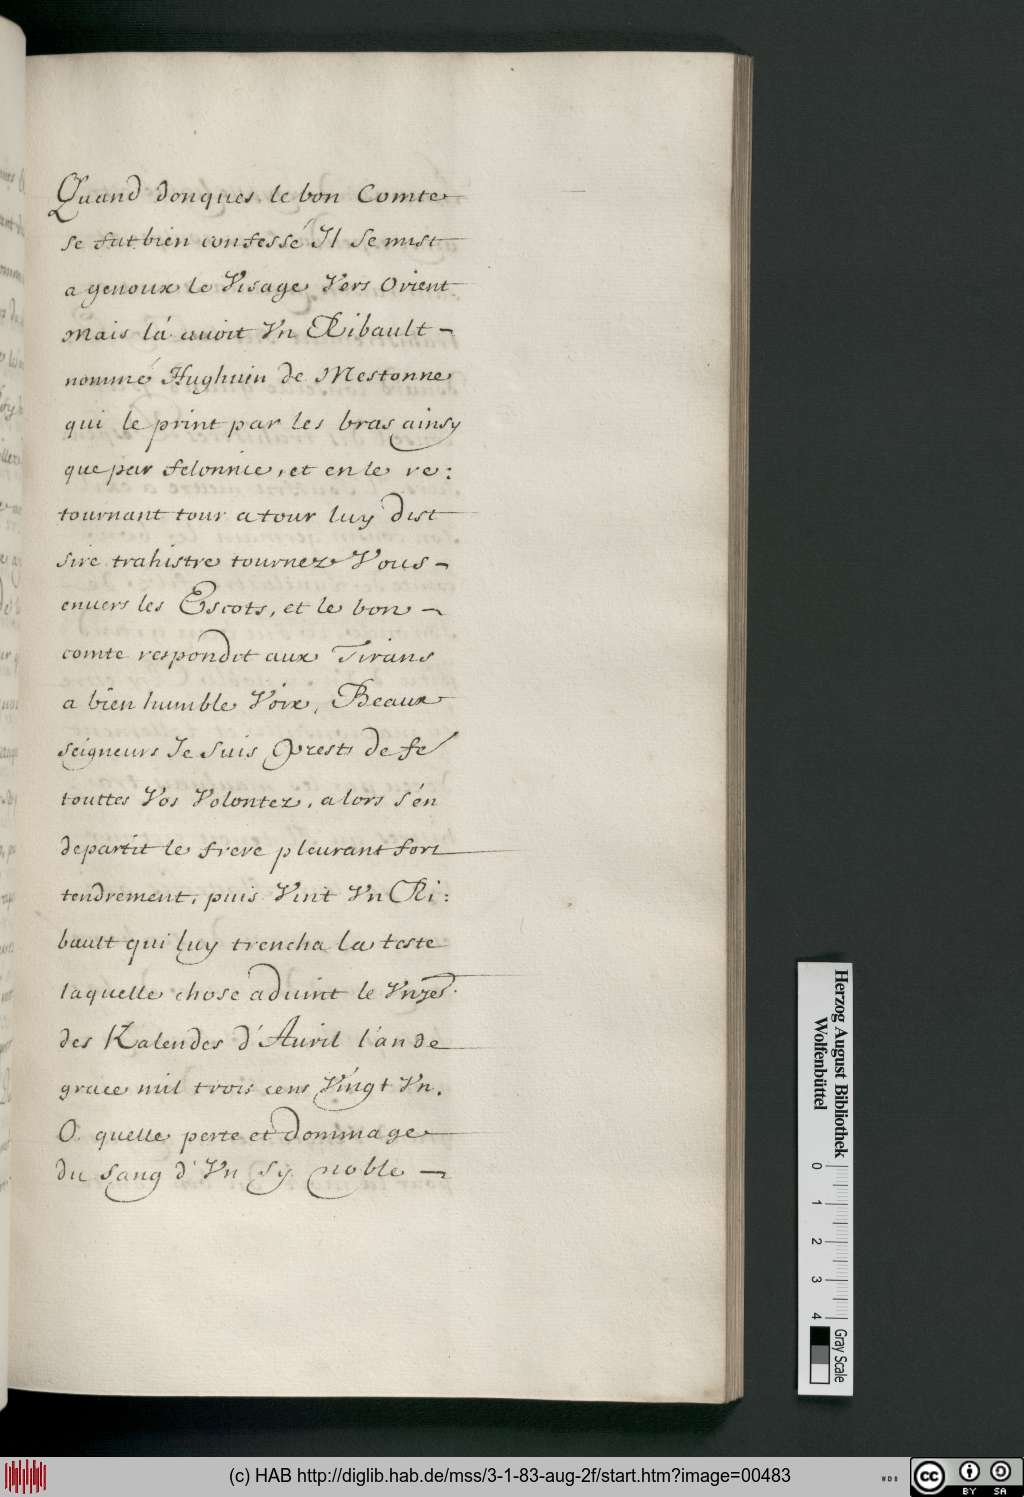 Quand donques le bon Comte
se fut bien confessé Il se mist
a genoux le Visage Vers Orient
mais lá avoit Vn Ribault -
nommé Hughuin de Mestonne
qui le print par les bras ainsy
que par felonnie, et en le re:
tournant tour a tour luy dist
sire trahistre tournez Vous -
envers les Escots, et le bon -
comte respondit aux Tirans
a bien humble Voix, Beaux
seigneurs Je suis Prests de fe
touttes Vos Volontez, alors s'én
departit le frere pleurant fort
tendrement, puis Vint Vn Ri:
bault qui luy trencha la teste
laquelle chose aduint le
des Kalendes d'Auril l'an de
grace mil trois cens Vingt Vn.
O quelle perte et dommage
du sang d'Vn sy noble -
Herzog August Bibliothek
Wolfenbüttel
0 1 2 3 4
Gray Scale
(c) HAB http://diglib.hab.de/mss/3-1-83-aug-2f/start.htm?image=00483
cc BY SA